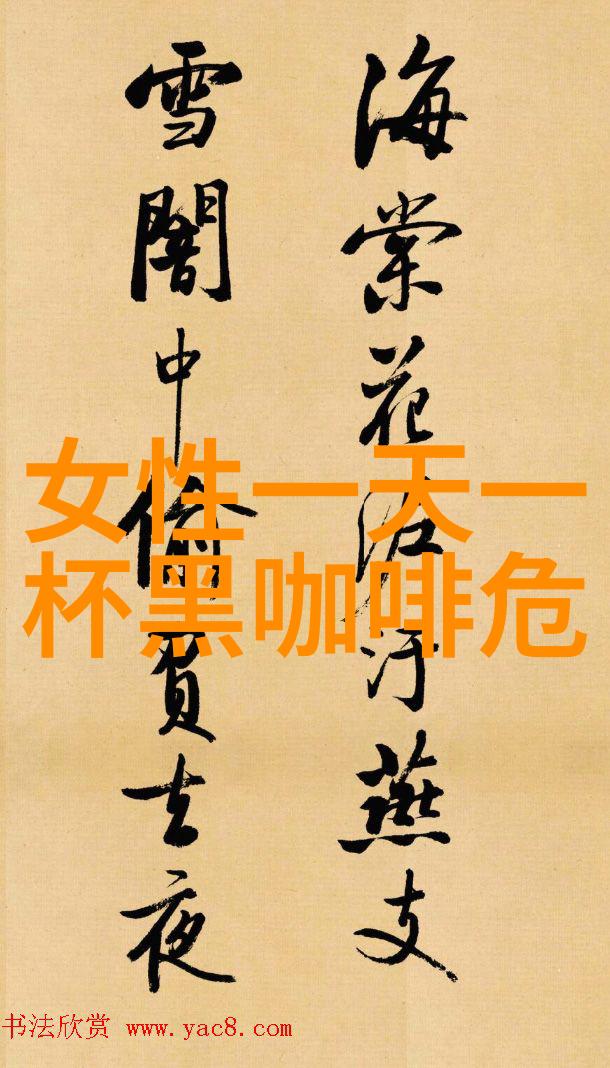 海棠花泥汙燕支
雪闇中偷負去夜
女性一天一
杯黑咖啡危
书法欣赏 www.yac8.com